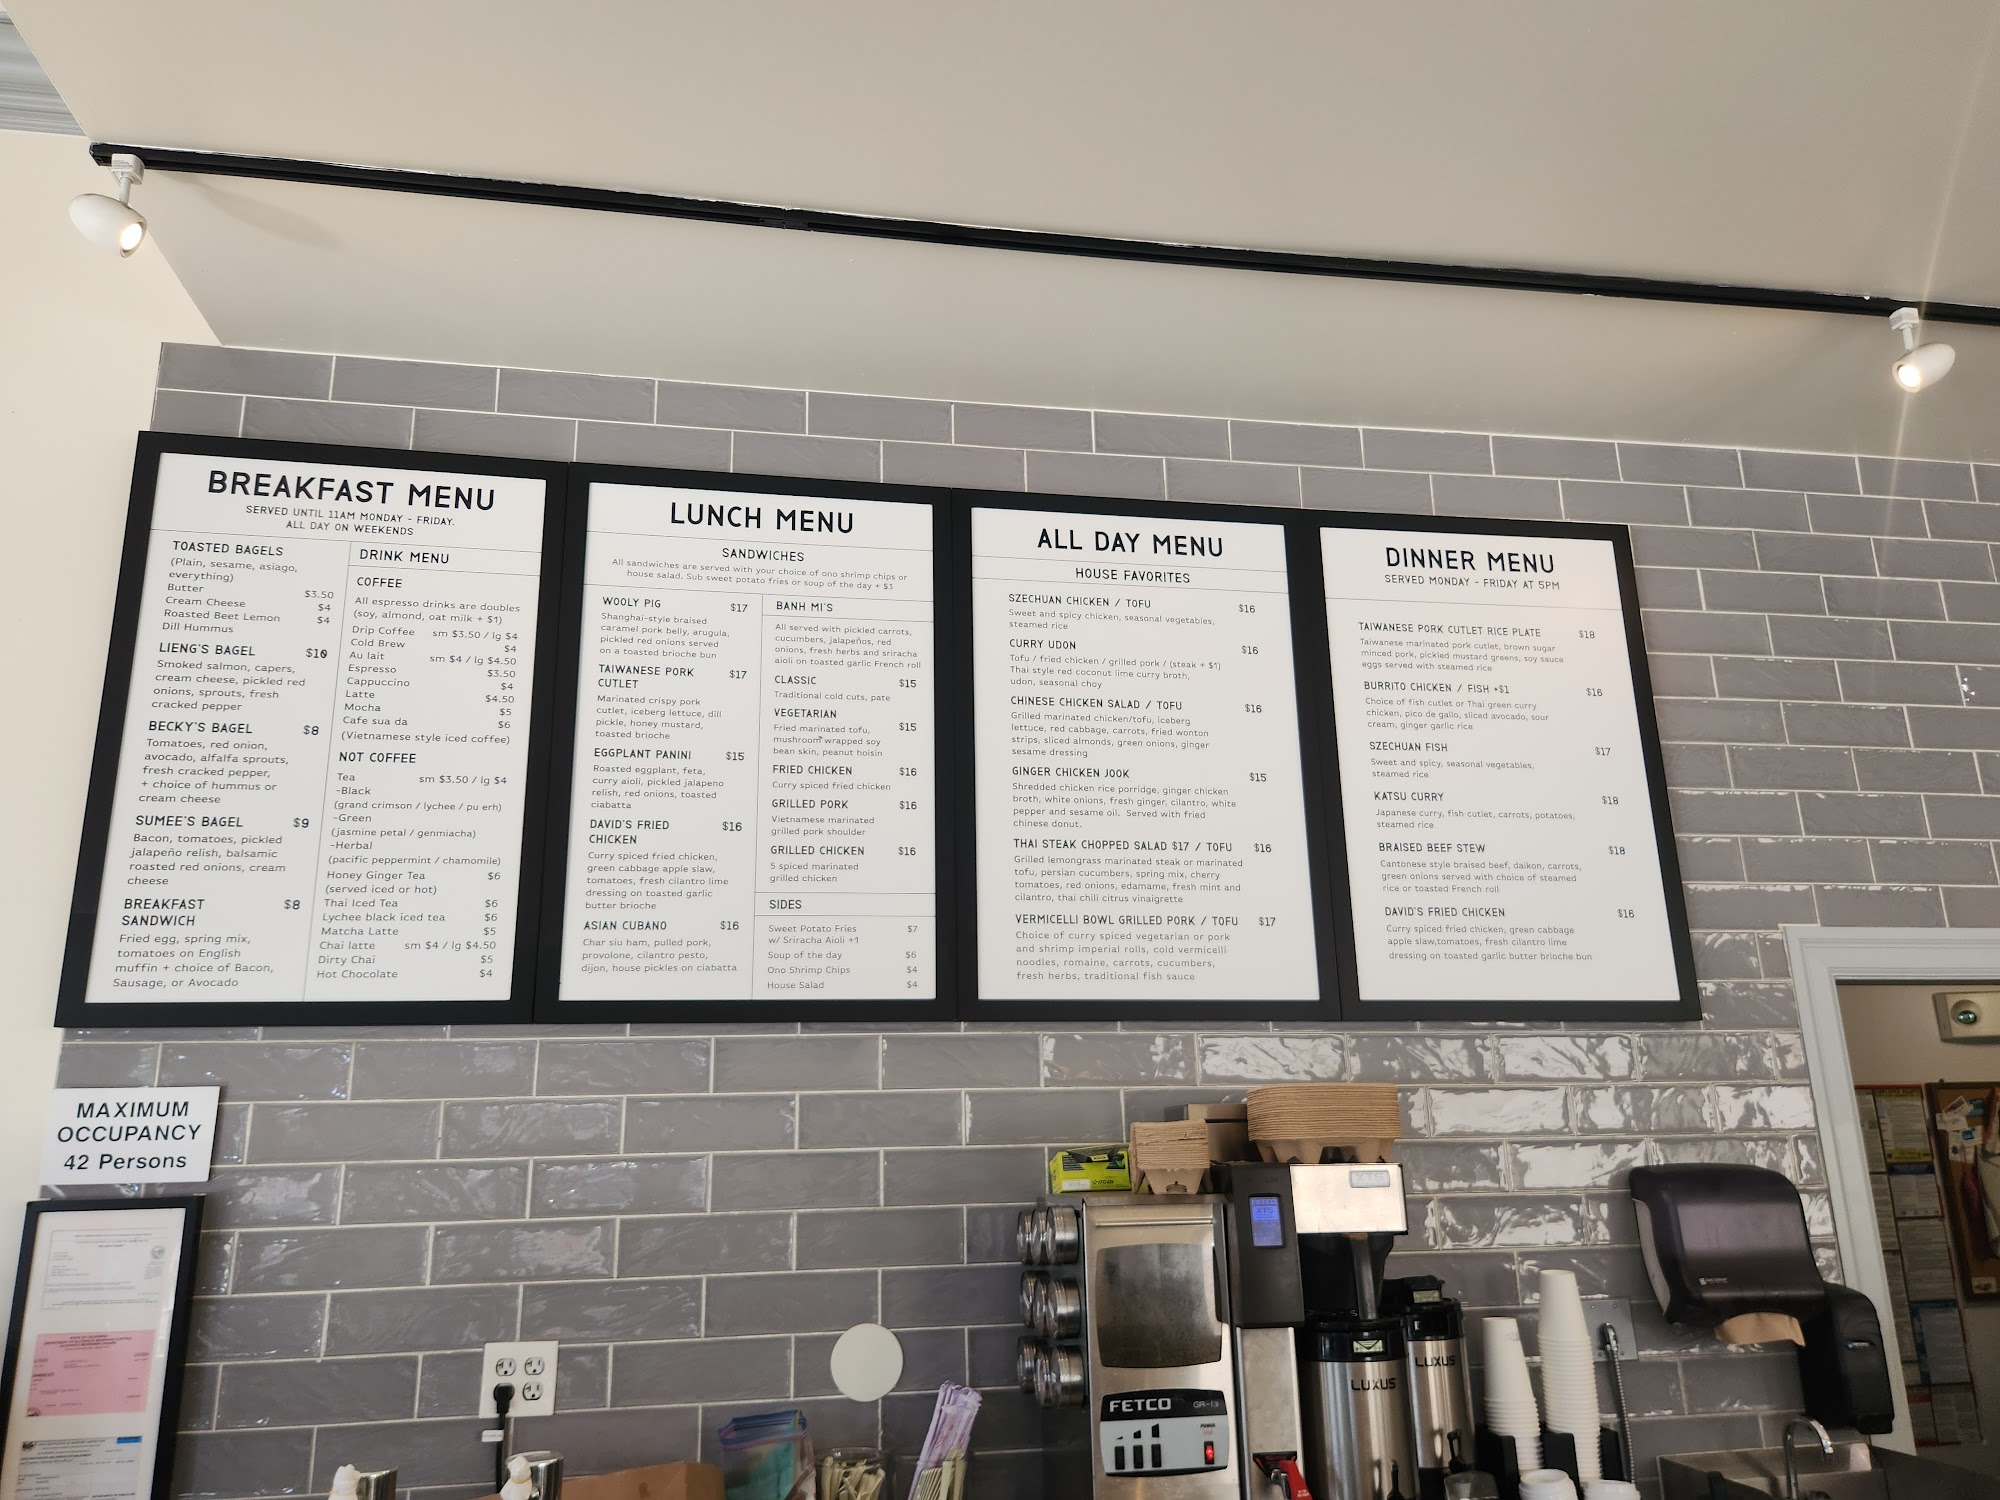 BREAKFAST MENU
SERVED UNTIL 11AM MONDAY - FRIDAY.
ALL DAY ON WEEKENDS
TOASTED BAGELS
(Plain, sesame, asiago,
everything)
Butter $3.50
Cream Cheese $4
Roasted Beet Lemon $4
Dill Hummus
LIENG'S BAGEL $10
Smoked salmon, capers,
cream cheese, pickled red
onions, sprouts, fresh
cracked pepper
BECKY'S BAGEL $8
Tomatoes, red onion,
avocado, alfalfa sprouts,
fresh cracked pepper,
+ choice of hummus or
cream cheese
SUMEE'S BAGEL $9
Bacon, tomatoes, pickled
jalapeño relish, balsamic
roasted red onions, cream
cheese
BREAKFAST $8
SANDWICH
Fried egg, spring mix,
tomatoes on English
muffin + choice of Bacon,
Sausage, or Avocado
DRINK MENU
COFFEE
All espresso drinks are doubles
(soy, almond, oat milk + $1)
Drip Coffee sm $3.50 / lg $4
Cold Brew $4
Au lait sm $4 / lg $4.50
Espresso $3.50
Cappuccino $4
Latte $4.50
Mocha $5
Cafe sua da $6
(Vietnamese style iced coffee)
NOT COFFEE
Tea sm $3.50 / lg $4
-Black
(grand crimson / lychee / pu erh)
-Green
(jasmine petal / genmiacha)
-Herbal
(pacific peppermint / chamomile)
Honey Ginger Tea $6
(served iced or hot)
Thai Iced Tea $6
Lychee black iced tea $6
Matcha Latte $5
Chai latte sm $4 / lg $4.50
Dirty Chai $5
Hot Chocolate $4
LUNCH MENU
SANDWICHES
All sandwiches are served with your choice of ono shrimp chips or
house salad. Sub sweet potato fries or soup of the day + $3
WOOLY PIG $17
Shanghai-style braised
caramel pork belly, arugula,
pickled red onions served
on a toasted brioche bun
TAIWANESE PORK $17
CUTLET
Marinated crispy pork
cutlet, iceberg lettuce, dill
pickle, honey mustard,
toasted brioche
EGGPLANT PANINI $15
Roasted eggplant, feta,
curry aioli, pickled jalapeno
relish, red onions, toasted
ciabatta
DAVID'S FRIED $16
CHICKEN
Curry spiced fried chicken,
green cabbage apple slaw,
tomatoes, fresh cilantro lime
dressing on toasted garlic
butter brioche
ASIAN CUBANO $16
Char siu ham, pulled pork,
provolone, cilantro pesto,
dijon, house pickles on ciabatta
BANH MI'S
All served with pickled carrots,
cucumbers, jalapeños, red
onions, fresh herbs and sriracha
aioli on toasted garlic French roll
CLASSIC $15
Traditional cold cuts, pate
VEGETARIAN $15
Fried marinated tofu,
mushroom wrapped soy
bean skin, peanut hoisin
FRIED CHICKEN $16
Curry spiced fried chicken
GRILLED PORK $16
Vietnamese marinated
grilled pork shoulder
GRILLED CHICKEN $16
5 spiced marinated
grilled chicken
SIDES
Sweet Potato Fries $7
w/ Sriracha Aioli +1
Soup of the day $6
Ono Shrimp Chips $4
House Salad $4
ALL DAY MENU
HOUSE FAVORITES
SZECHUAN CHICKEN / TOFU $16
Sweet and spicy chicken, seasonal vegetables,
steamed rice
CURRY UDON $16
Tofu / fried chicken / grilled pork / (steak + $1)
Thai style red coconut lime curry broth,
udon, seasonal choy
CHINESE CHICKEN SALAD / TOFU $16
Grilled marinated chicken/tofu, iceberg
lettuce, red cabbage, carrots, fried wonton
strips, sliced almonds, green onions, ginger
sesame dressing
GINGER CHICKEN JOOK $15
Shredded chicken rice porridge, ginger chicken
broth, white onions, fresh ginger, cilantro, white
pepper and sesame oil. Served with fried
chinese donut.
THAI STEAK CHOPPED SALAD $17 / TOFU $16
Grilled lemongrass marinated steak or marinated
tofu, persian cucumbers, spring mix, cherry
tomatoes, red onions, edamame, fresh mint and
cilantro, thai chili citrus vinaigrette
VERMICELLI BOWL GRILLED PORK / TOFU $17
Choice of curry spiced vegetarian or pork
and shrimp imperial rolls, cold vermicelli
noodles, romaine, carrots, cucumbers,
fresh herbs, traditional fish sauce
DINNER MENU
SERVED MONDAY - FRIDAY AT 5PM
TAIWANESE PORK CUTLET RICE PLATE $18
Taiwanese marinated pork cutlet, brown sugar
minced pork, pickled mustard greens, soy sauce
eggs served with steamed rice
BURRITO CHICKEN / FISH +$1 $16
Choice of fish cutlet or Thai green curry
chicken, pico de gallo, sliced avocado, sour
cream, ginger garlic rice
SZECHUAN FISH $17
Sweet and spicy, seasonal vegetables,
steamed rice
KATSU CURRY $18
Japanese curry, fish cutlet, carrots, potatoes,
steamed rice
BRAISED BEEF STEW $18
Cantonese style braised beef, daikon, carrots,
green onions served with choice of steamed
rice or toasted French roll
DAVID'S FRIED CHICKEN $16
Curry spiced fried chicken, green cabbage
apple slaw,tomatoes, fresh cilantro lime
dressing on toasted garlic butter brioche bun
MAXIMUM
OCCUPANCY
42 Persons
FETCO
XTS
FETCO GR-1.3
LUXUS
LUXUS